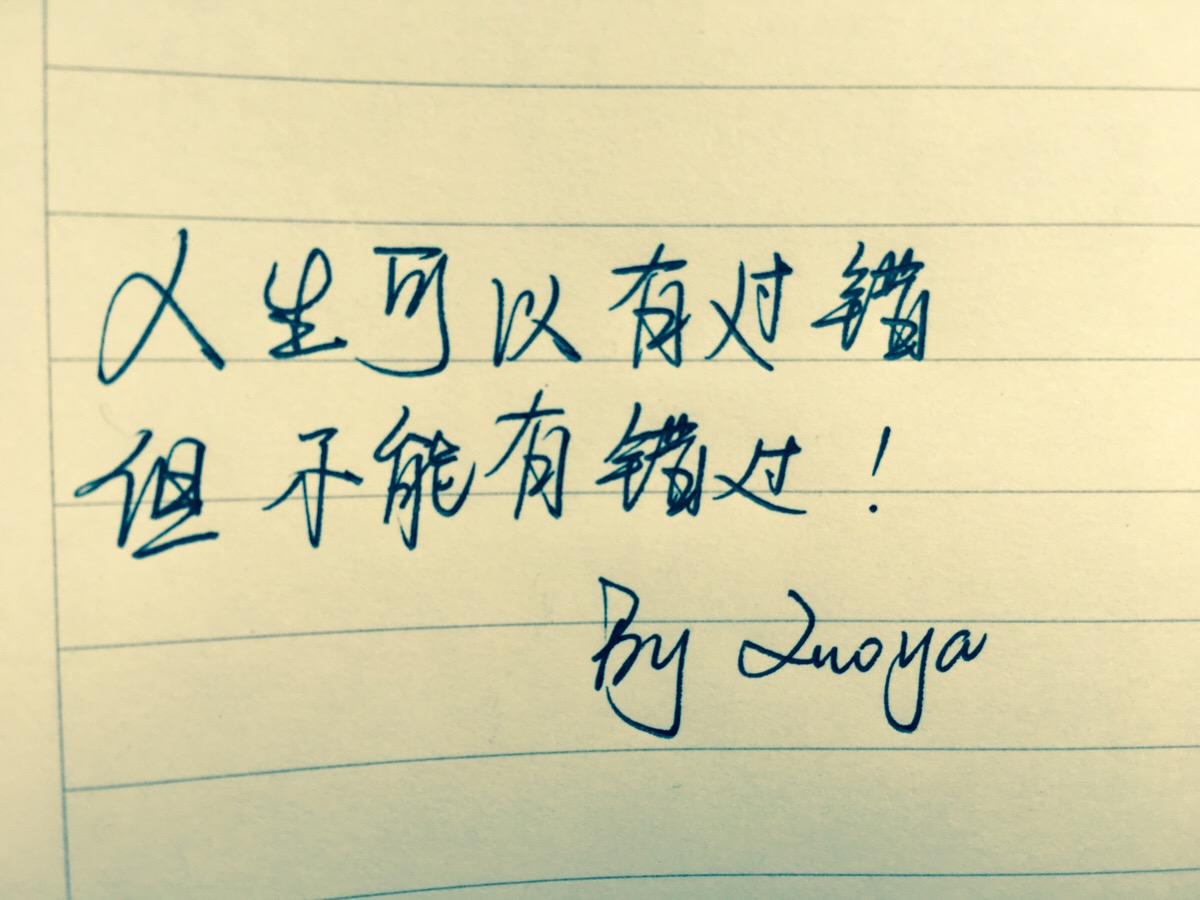 人生可以有过错
但不能有错过!
By Luoya